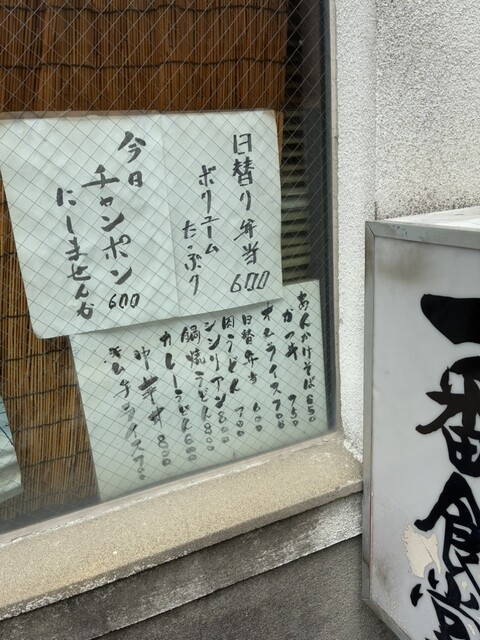 日替り弁当 600
ボリューム
たっぷり
今日
チャンポン 600
にしませんか
あんかけそば 850
かつ丼 750
オムライス 700
日替弁当 600
肉うどん 700
シシリアン 800
鍋焼うどん 800
カレーうどん 600
中華丼 800
キムチライス 700
一番食堂